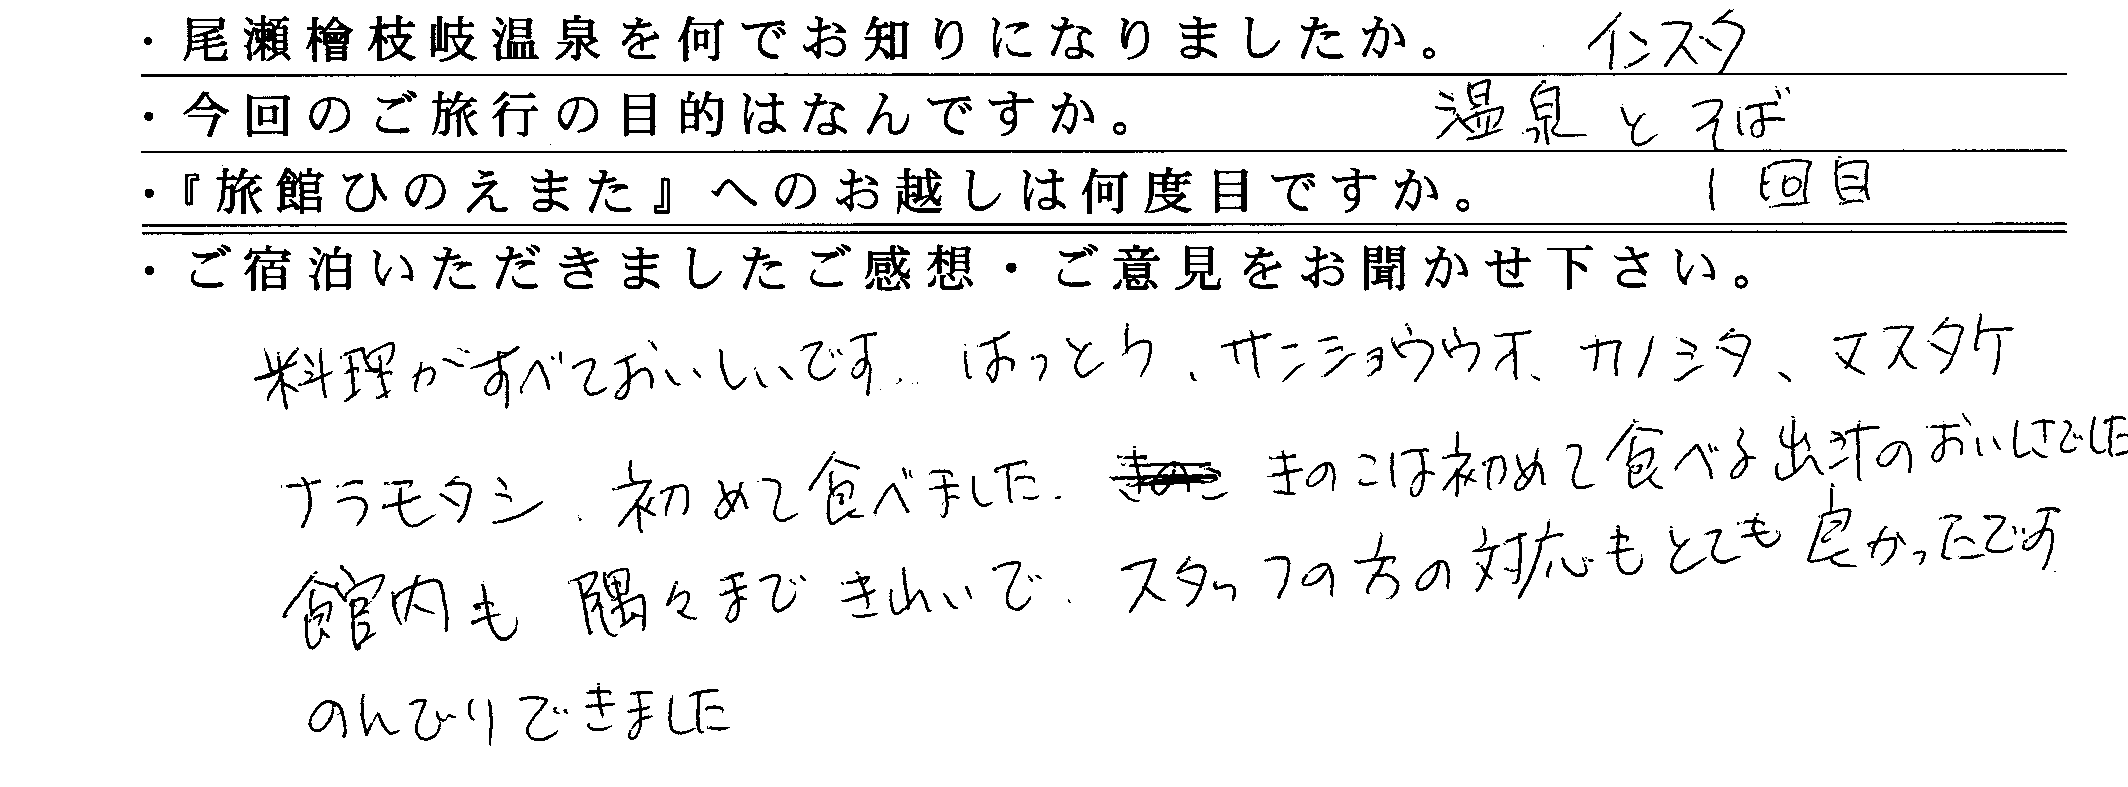 ・尾瀬檜枝岐温泉を何でお知りになりましたか。 インスタ
・今回のご旅行の目的はなんですか。 温泉とそば
・『旅館ひのえまた』へのお越しは何度目ですか。 1回目
・ご宿泊いただきましたご感想・ご意見をお聞かせ下さい。
料理がすべておいしいです。はっとう、サンショウウオ、カノシタ、マスタケ
ナラモタシ、初めて食べました。きのこは初めて食べる出汁のおいしさでした
館内も隅々まできれいで、スタッフの方の対応もとても良かったです
のんびりできました